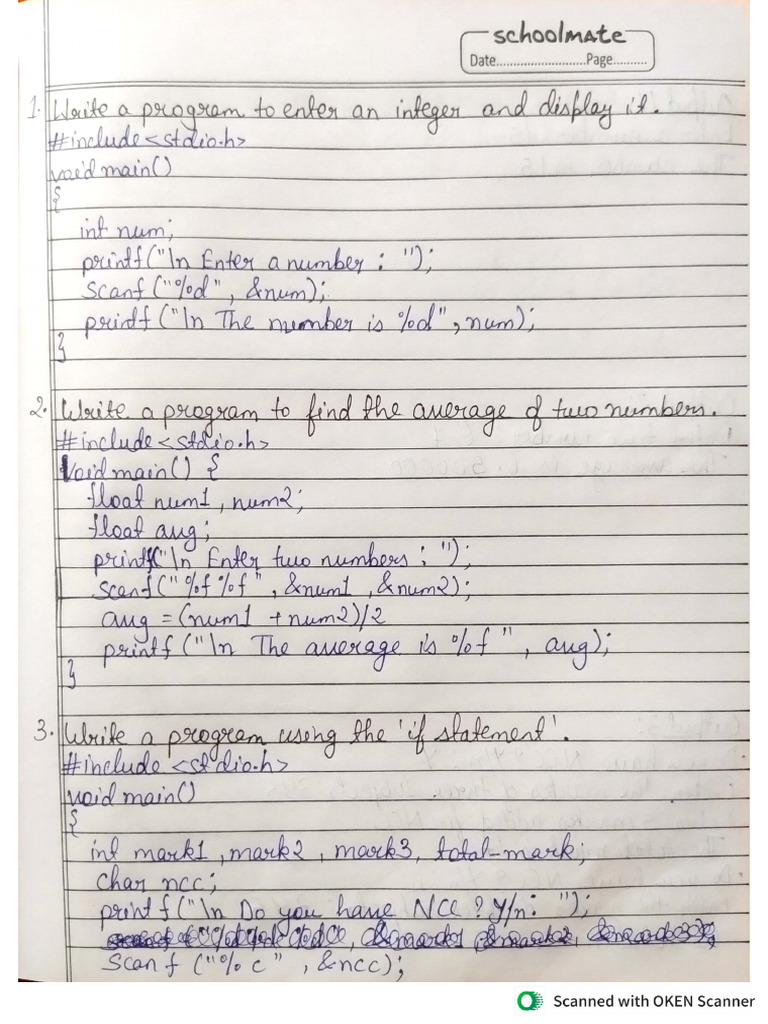 schoolmate
Date..........................Page..........
1. Write a program to enter an integer and display it.
#include<stdio.h>
void main()
{
int num;
printf("\n Enter a number : ");
Scanf ("%d", &num);
printf ("\n The number is %d", num);
}
2. Write a program to find the average of two numbers.
#include<stdio.h>
Void main() {
float num1, num2;
float avg;
printf("\n Enter two numbers : ");
scanf("%f%f", &num1, &num2);
avg =(num1 +num2)/2
printf ("\n The average is %f", avg);
}
3. Write a program using the 'if statement'.
#include <stdio.h>
void main()
{
int mark1, mark2, mark3, total-mark;
Char ncc;
print f("\n Do you have NCC ? Y/n: ");
Scan f ("%c", &ncc);
Scanned with OKEN Scanner